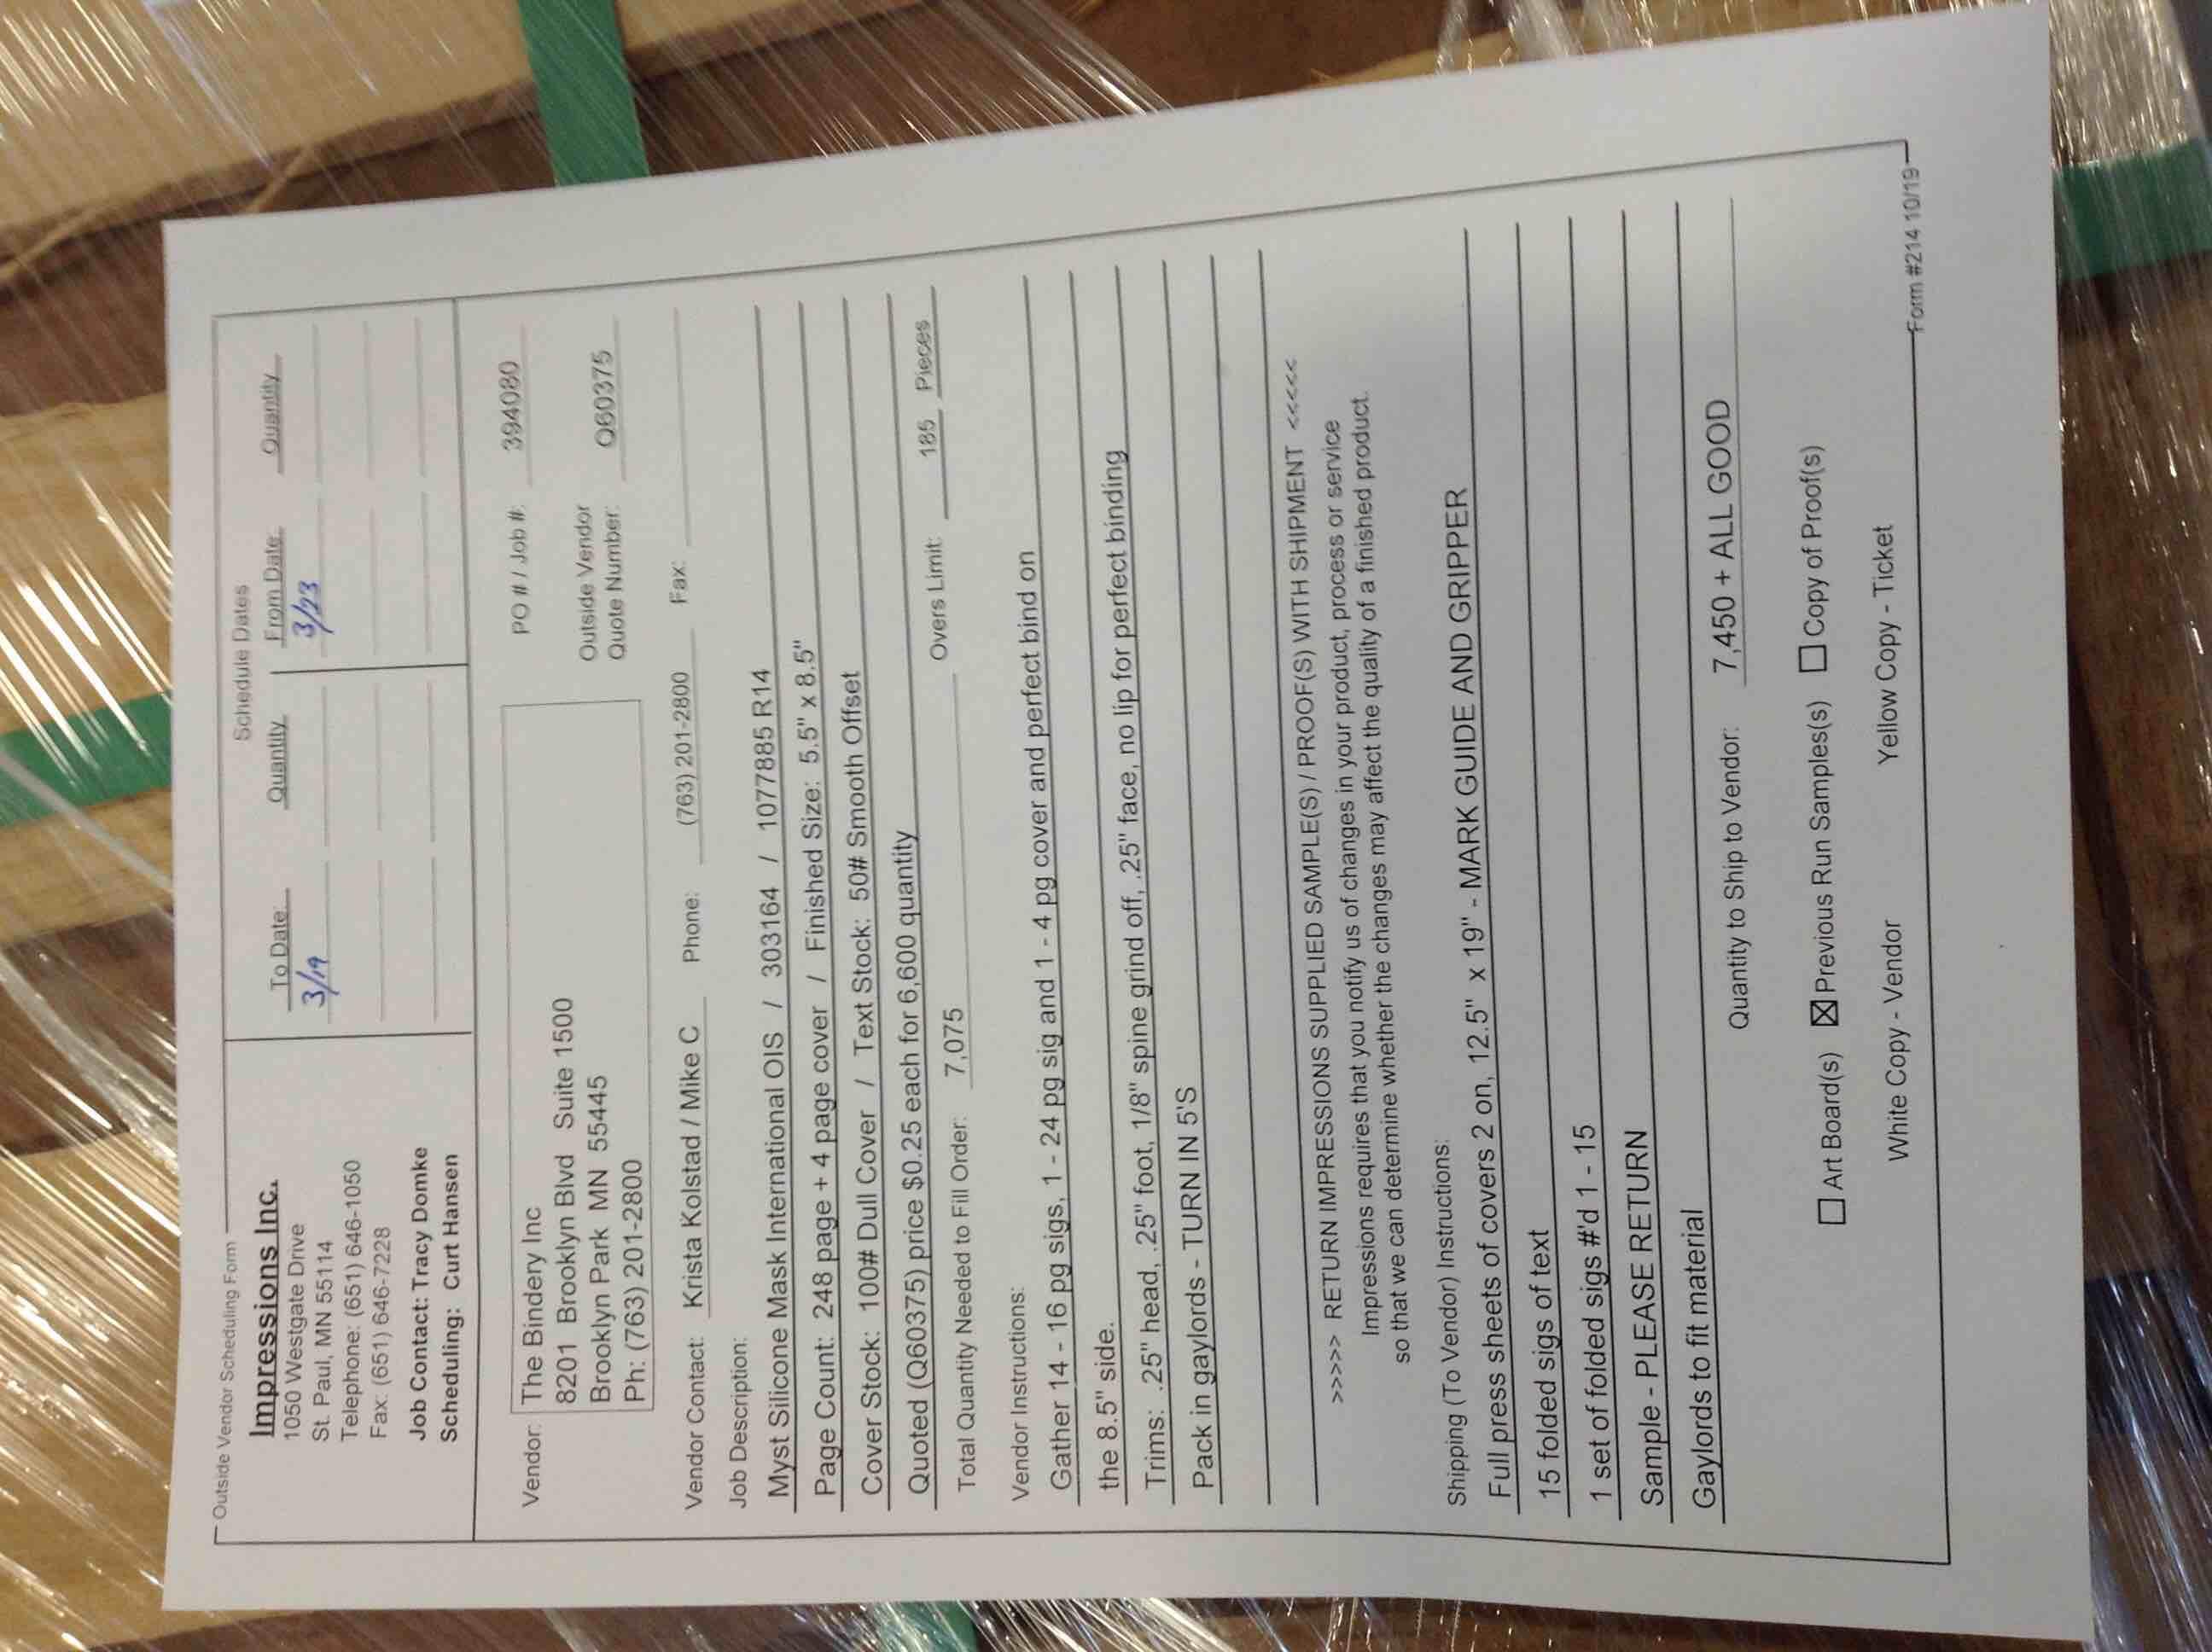 Outside Vendor Scheduling Form
Impressions Inc.
1050 Westgate Drive
St. Paul, MN 55114
Telephone: (651) 646-1050
Fax: (651) 646-7228
Job Contact: Tracy Domke
Scheduling: Curt Hansen
Schedule Dates
To Date: Quantity From Date: Quantity
3/19 3/23
Vendor: The Bindery Inc
8201 Brooklyn Blvd Suite 1500
Brooklyn Park MN 55445
Ph: (763) 201-2800
PO # / Job #: 394080
Outside Vendor
Quote Number: Q60375
Vendor Contact: Krista Kolstad / Mike C Phone: (763) 201-2800 Fax:
Job Description:
Myst Silicone Mask International OIS / 303164 / 1077885 R14
Page Count: 248 page + 4 page cover / Finished Size: 5.5" x 8.5"
Cover Stock: 100# Dull Cover / Text Stock: 50# Smooth Offset
Quoted (Q60375) price $0.25 each for 6,600 quantity
Total Quantity Needed to Fill Order: 7,075 Overs Limit: 185 Pieces
Vendor Instructions:
Gather 14 - 16 pg sigs, 1 - 24 pg sig and 1 - 4 pg cover and perfect bind on
the 8.5" side.
Trims: .25" head, .25" foot, 1/8" spine grind off, .25" face, no lip for perfect binding
Pack in gaylords - TURN IN 5'S
>>>>> RETURN IMPRESSIONS SUPPLIED SAMPLE(S) / PROOF(S) WITH SHIPMENT <<<<<
Impressions requires that you notify us of changes in your product, process or service
so that we can determine whether the changes may affect the quality of a finished product.
Shipping (To Vendor) Instructions:
Full press sheets of covers 2 on, 12.5" x 19" - MARK GUIDE AND GRIPPER
15 folded sigs of text
1 set of folded sigs #'d 1 - 15
Sample - PLEASE RETURN
Gaylords to fit material
Quantity to Ship to Vendor: 7,450 + ALL GOOD
☐ Art Board(s) ☒ Previous Run Samples(s) ☐ Copy of Proof(s)
White Copy - Vendor Yellow Copy - Ticket
Form #214 10/19